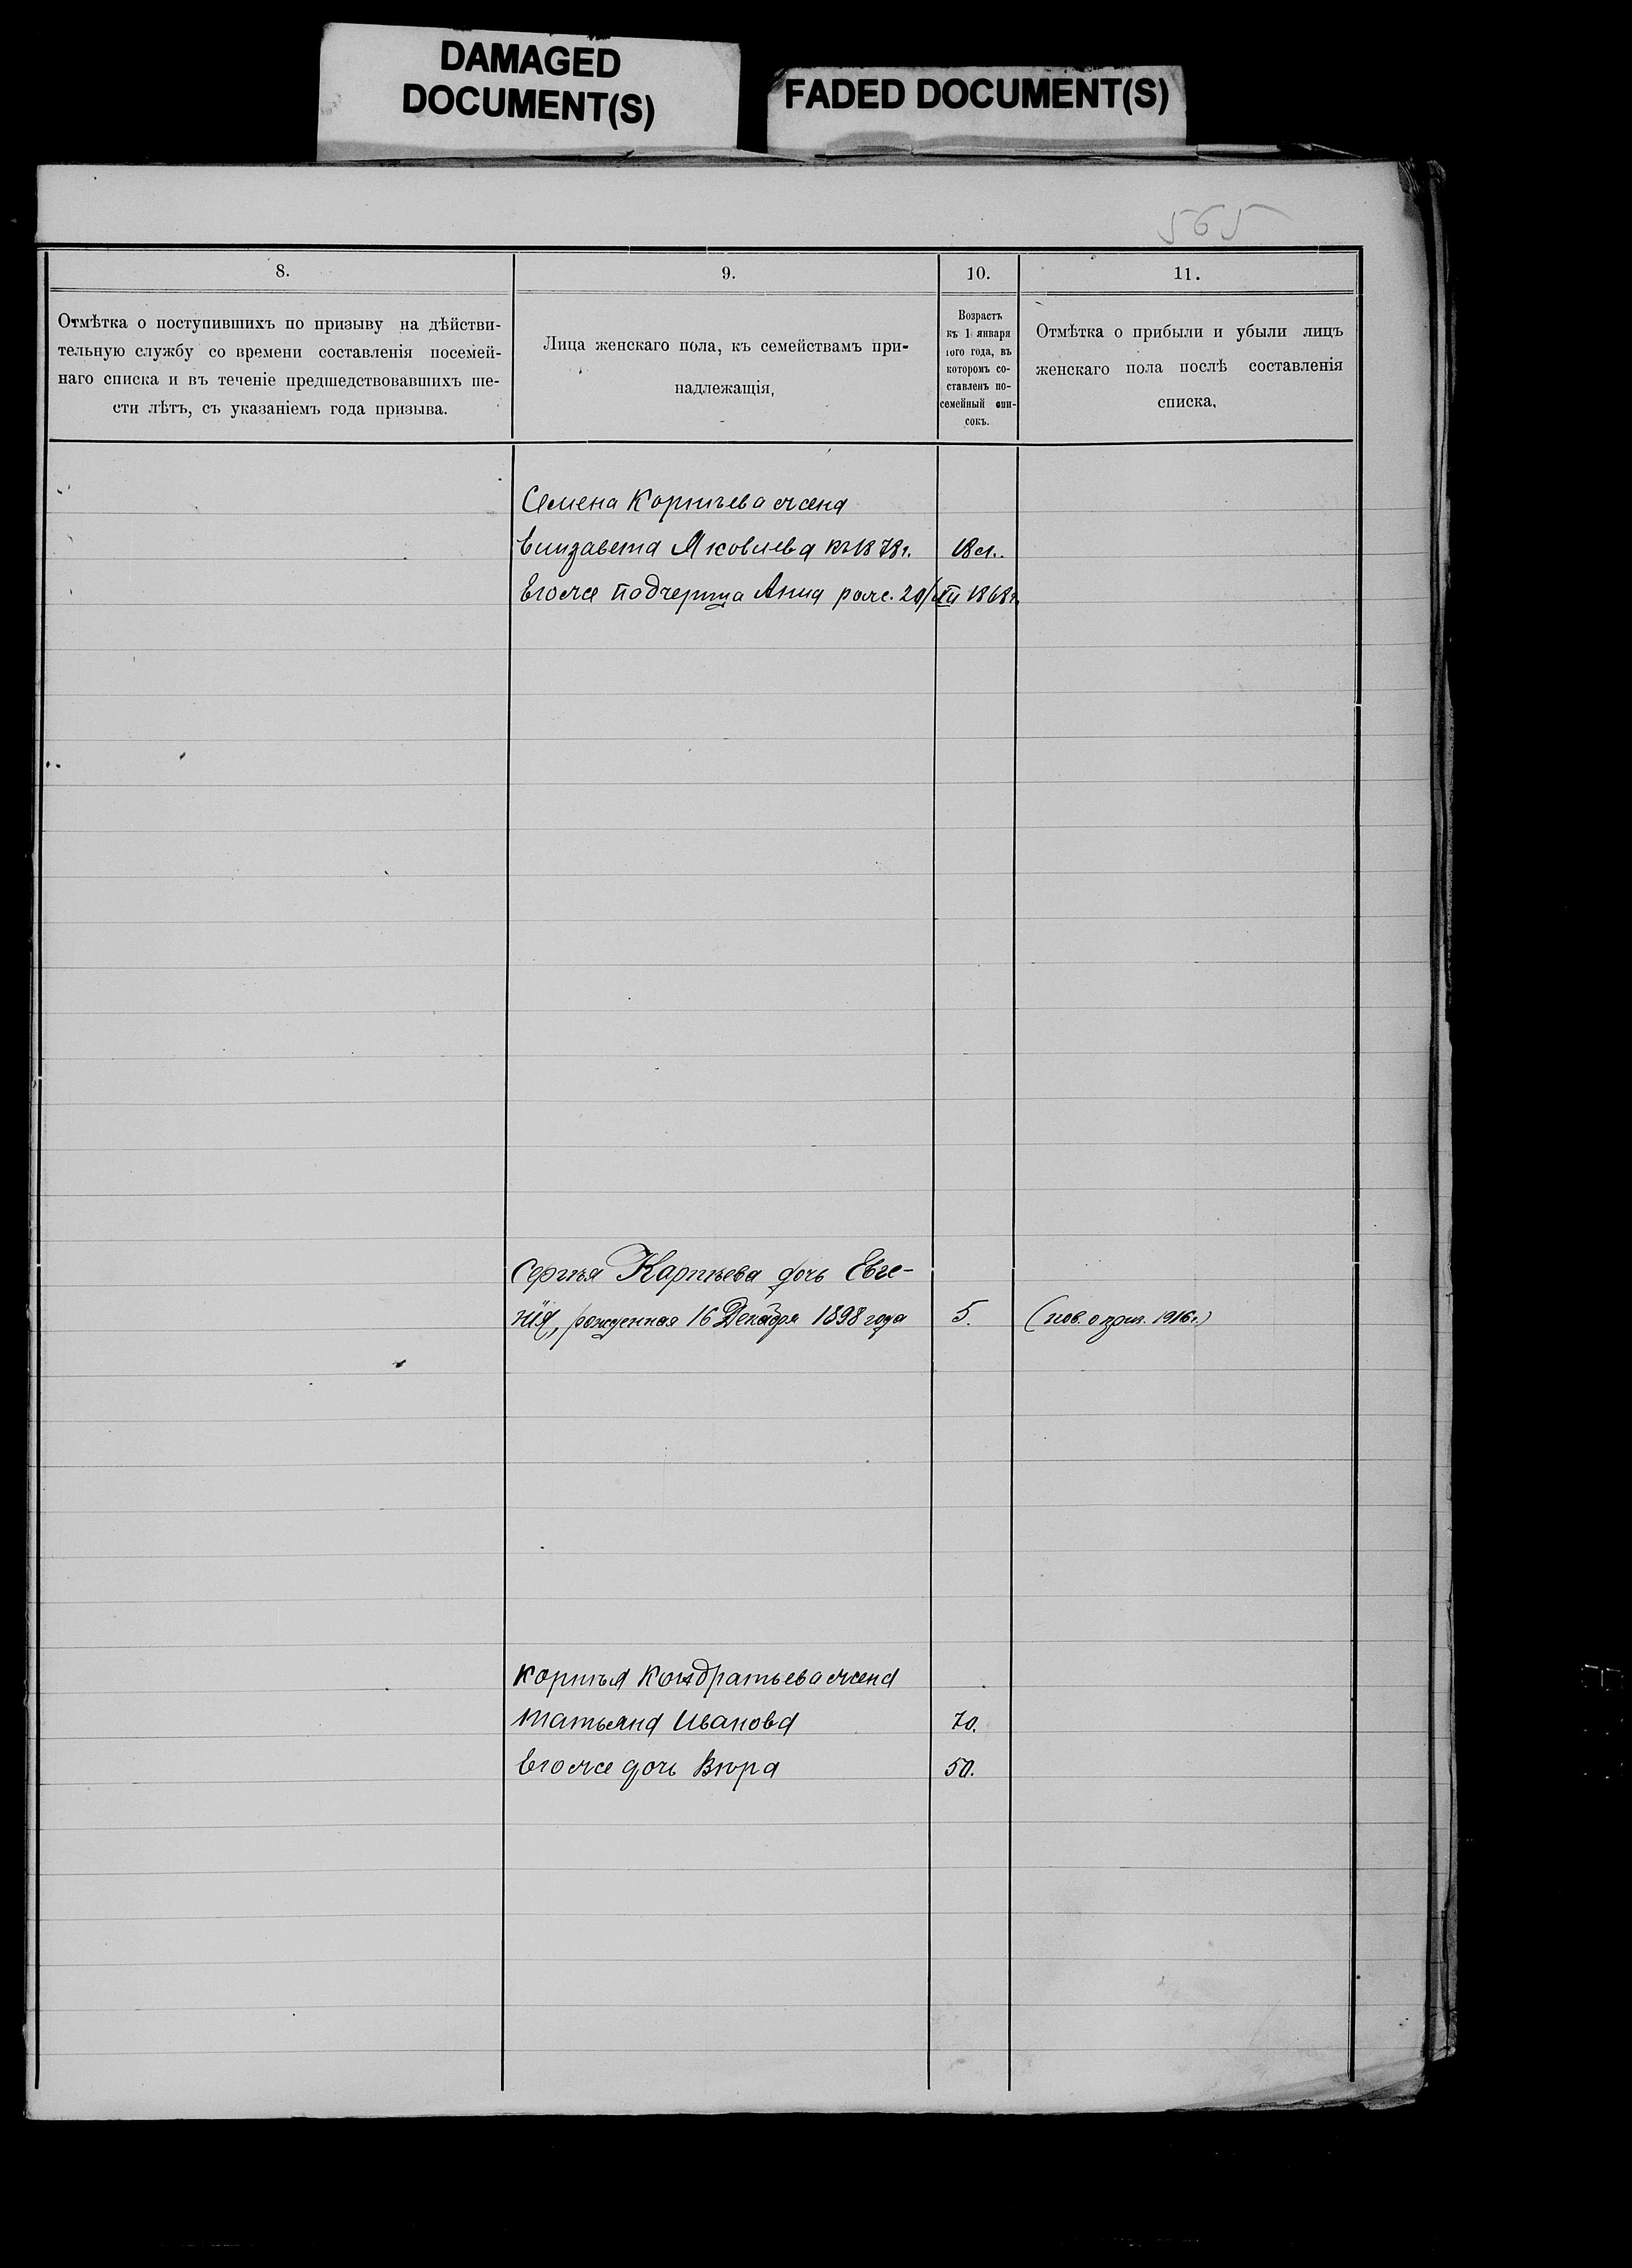 DAMAGED
DOCUMENT(S)
FADED DOCUMENT(S)
565
8.
Отмѣтка о поступившихъ по призыву на дѣйстви-
тельную службу со времени составленія посемей-
наго списка и въ теченіе предшедствовавшихъ ше-
сти лѣтъ, съ указаніемъ года призыва.
9.
Лица женскаго пола, къ семействамъ при-
надлежащія,
10.
Возрастъ
къ 1 января
того года, въ
которомъ со-
ставленъ по-
семейный спи-
сокъ.
11.
Отмѣтка о прибыли и убыли лицъ
женскаго пола послѣ составленія
списка,
Семена Корнѣева жена
Елизавета Яковлева къ 1878г. 18 л.
Егоже падчерица Анна рож. 20/XII 1868г.
Сергѣя Карпѣева дочь Евге-
нія, рожденная 16 Декабря 1898 года 5. (пов. о 1916г.)
Корнѣя Кондратьева жена
Татьяна Иванова 70.
Егоже дочь Вѣра 50.